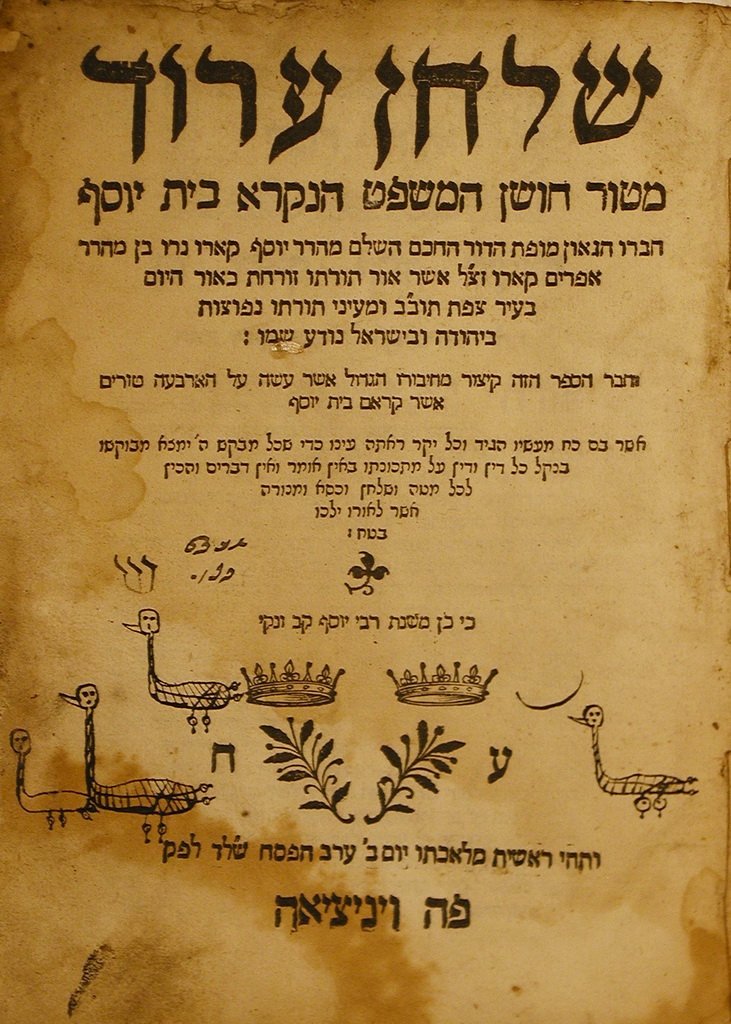 שלחן ערוך
מטור חושן המשפט הנקרא בית יוסף
חברו הגאון מופת הדור החכם השלם מהרר יוסף קארו נרו בן מהרר
אפרים קארו זצ״ל אשר אור תורתו זורחת כאור היום
בעיר צפת תוב״ב ומעיני תורתו נפוצות
ביהודה ובישראל נודע שמו :
וחבר הספר הזה קיצור מחיבורו הגדול אשר עשה על הארבעה טורים
אשר קראם בית יוסף
אשר בם כח מעשיו הגיד וכל יקר ראתה עינו כדי שכל מבקש ה׳ ימצא מבוקשו
בנקל כל דין ודין על מתכונתו באין אומר ואין דברים והכין
לכל מטה ושלחן וכסא ומנורה
אשר לאורו ילכו
בטח :
כי כן משנת רבי יוסף קב ונקי
ח ע
ותהי ראשית מלאכתו יום ב׳ ערב הפסח של״ד לפק
פה ויניציאה